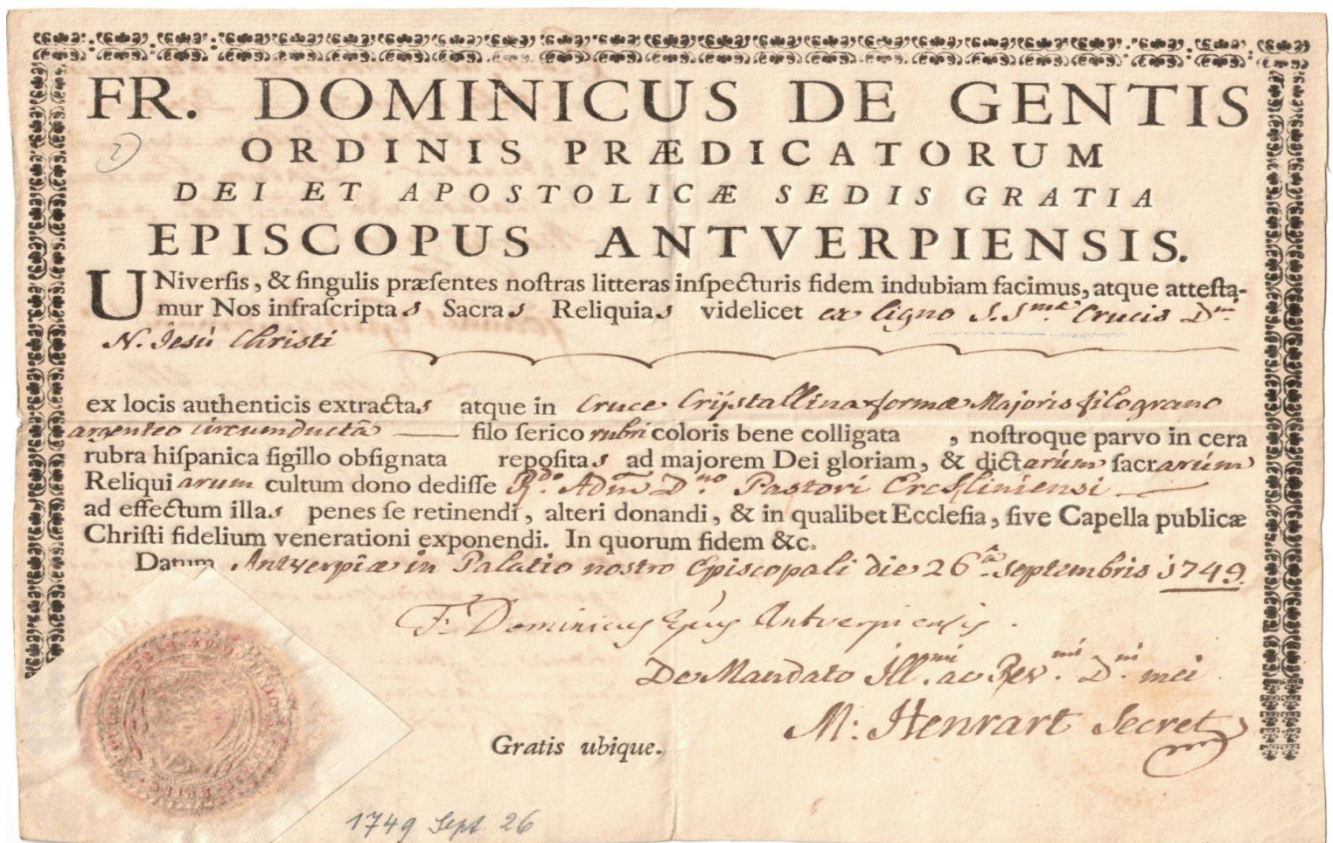 FR. DOMINICUS DE GENTIS
(2)
ORDINIS PRÆDICATORUM
DEI ET APOSTOLICÆ SEDIS GRATIA
EPISCOPUS ANTVERPIENSIS.
UNiverſis, & ſingulis præſentes noſtras litteras inſpecturis fidem indubiam facimus, atque atteſta-
mur Nos infraſcriptas Sacras Reliquias videlicet ex ligno S.Smæ Crucis Dni
N. Jesu Christi
ex locis authenticis extractas atque in Cruce Crijstallina formæ Majoris filograno
argenteo circumductâ — filo ſerico rubri coloris bene colligata , noſtroque parvo in cera
rubra hiſpanica ſigillo obſignata repoſitas ad majorem Dei gloriam, & dictarum ſacrarum
Reliquiarum cultum dono dediſſe Rdo Adm Dno Pastori
ad effectum illas penes ſe retinendi, alteri donandi, & in qualibet Eccleſia, ſive Capella publicæ
Chriſti fidelium venerationi exponendi. In quorum fidem &c.
Datum Antverpiæ in Palatio nostro Episcopali die 26ª septembris 1749.
F. Dominicus Epus Antverpiensis.
De Mandato Ill.mi ac Rev.mi Dni mei
M: Henrart Secret
Gratis ubique.
1749 Sept 26